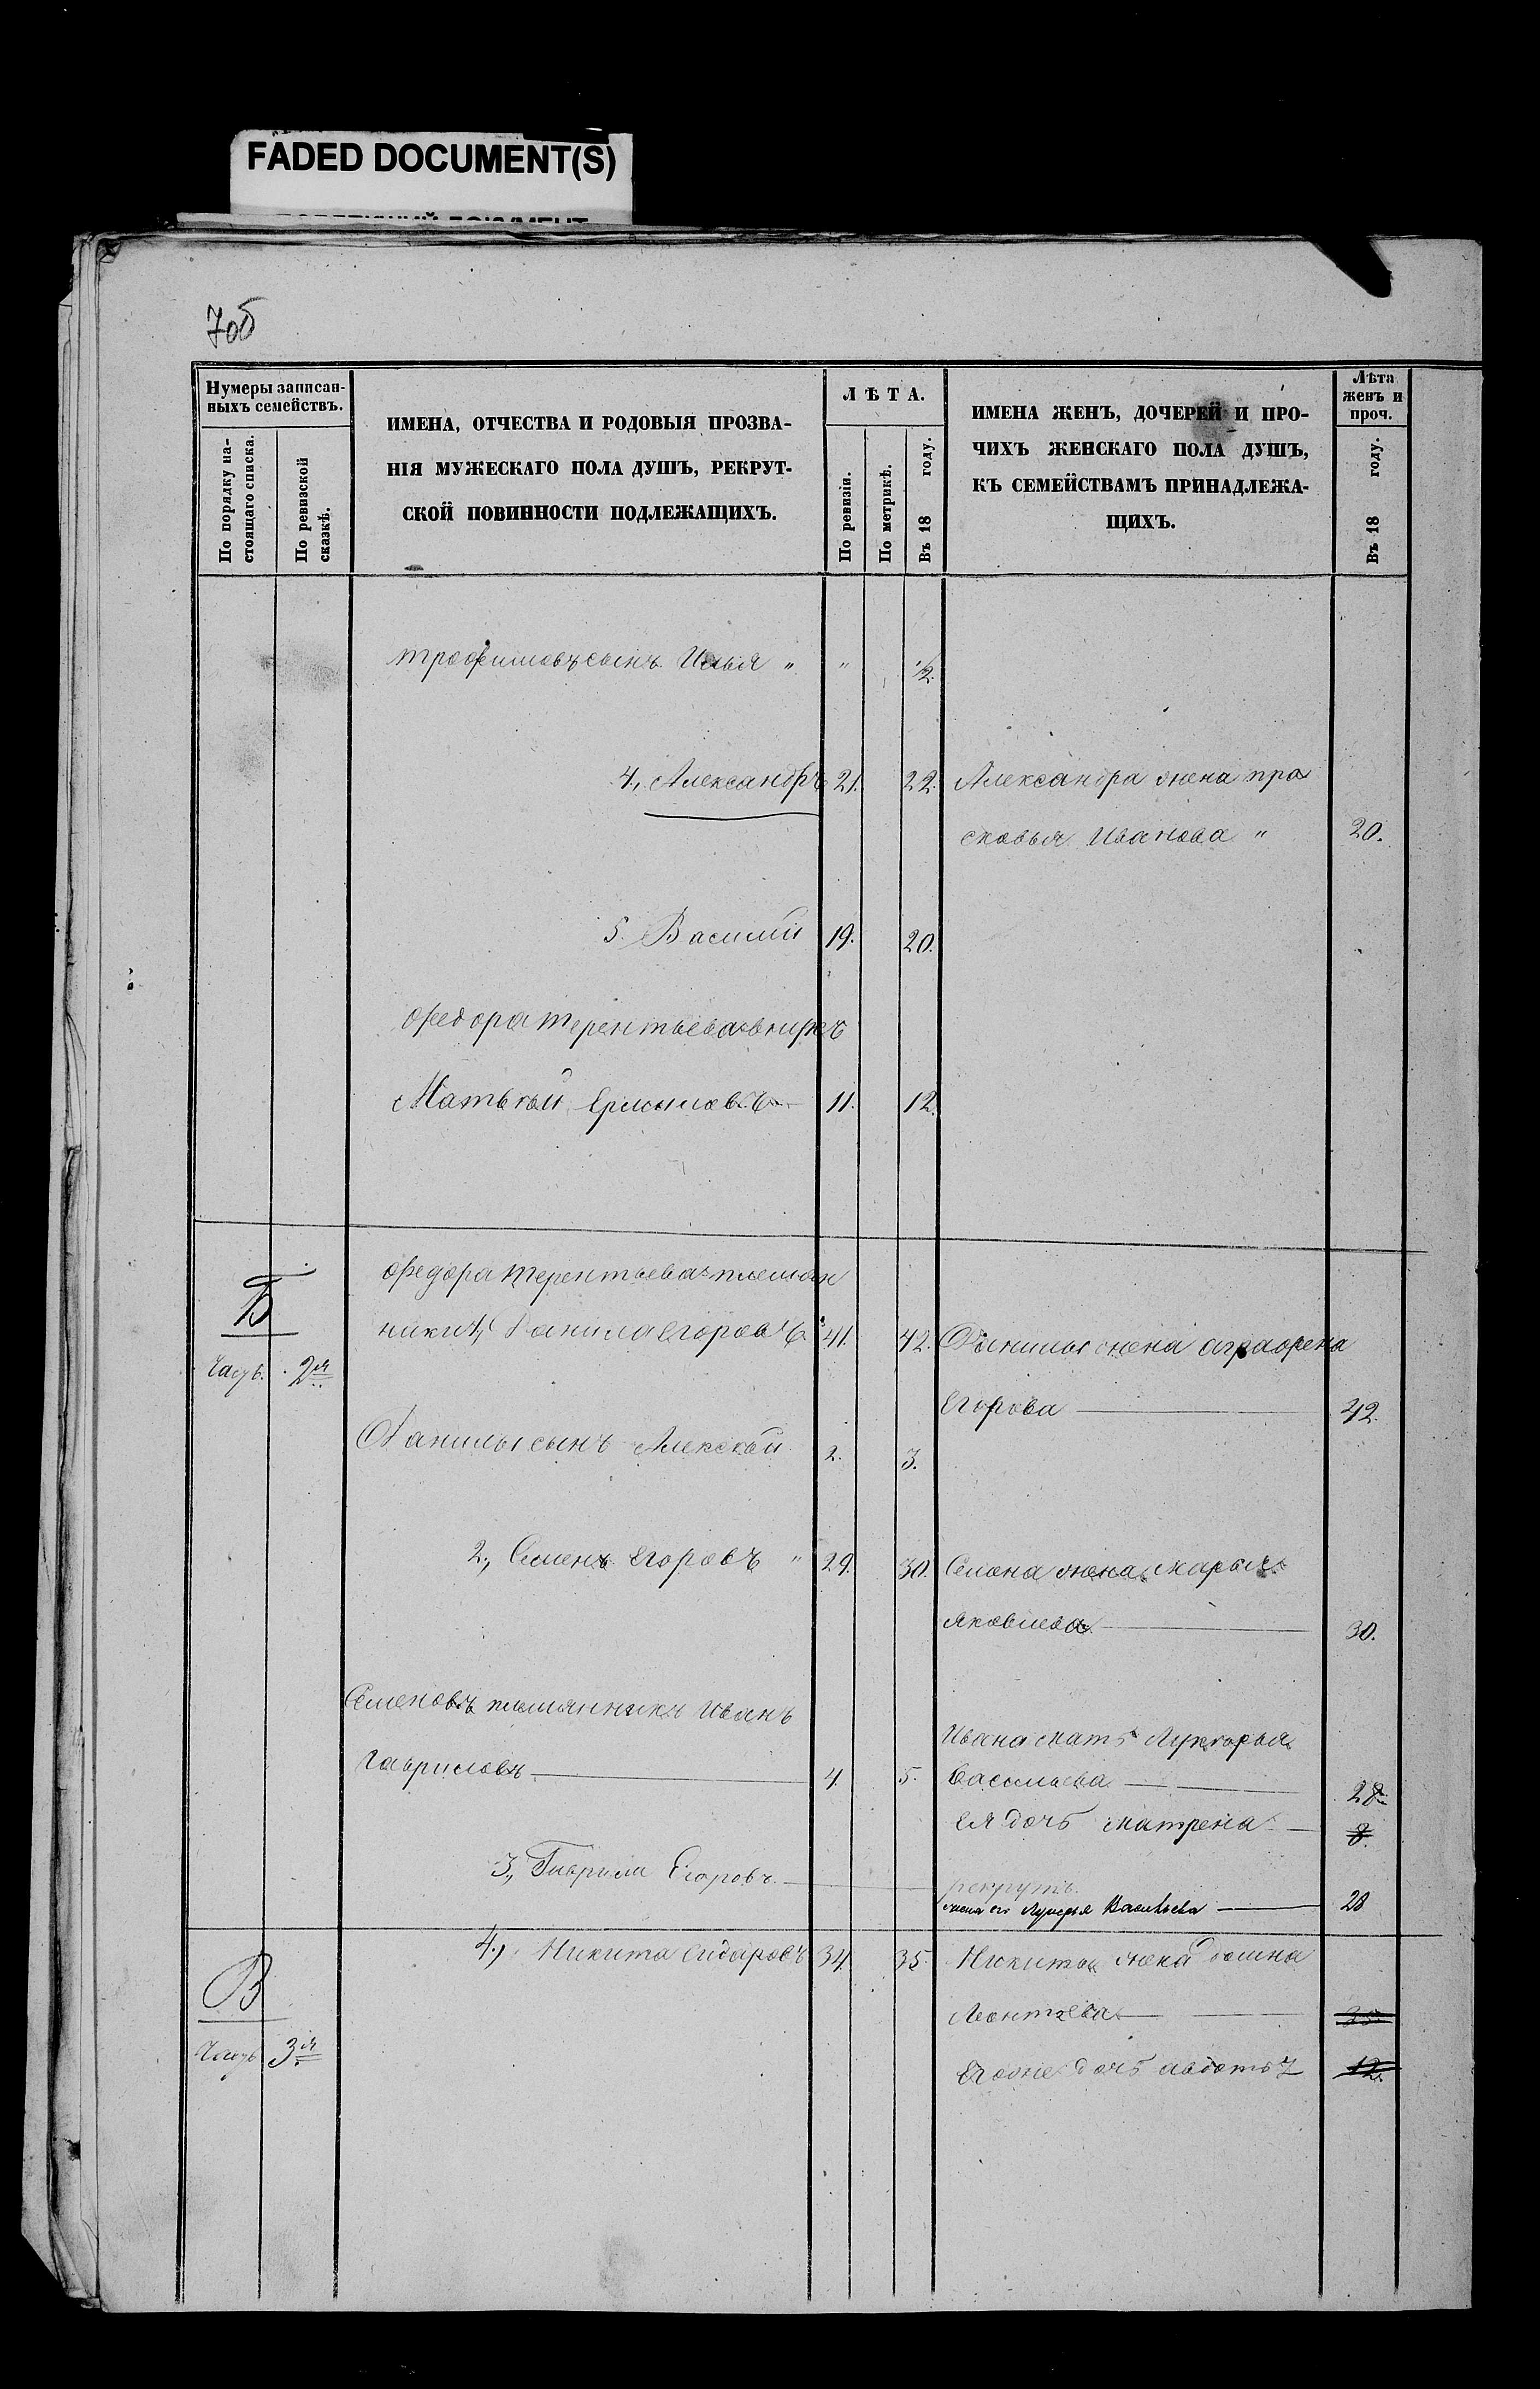 FADED DOCUMENT(S)
70б
Нумеры записан-
ныхъ семействъ.
По порядку на-
стоящаго списка.
По ревизской
сказкѣ.
ИМЕНА, ОТЧЕСТВА И РОДОВЫЯ ПРОЗВА-
НІЯ МУЖЕСКАГО ПОЛА ДУШЪ, РЕКРУТ-
СКОЙ ПОВИННОСТИ ПОДЛЕЖАЩИХЪ.
ЛѢТА.
По ревизіи.
По метрикѣ.
Въ 18 году.
ИМЕНА ЖЕНЪ, ДОЧЕРЕЙ И ПРО-
ЧИХЪ ЖЕНСКАГО ПОЛА ДУШЪ,
КЪ СЕМЕЙСТВАМЪ ПРИНАДЛЕЖА-
ЩИХЪ.
Лѣта
женъ и
проч.
Въ 18 году.
трофимовъ сынъ Илья " " 1/2.
4., Александръ 21. 22. Александра жена пра
сковья Иванова " 20.
5. Василий 19. 20.
Федора терентьева внукъ
Матвѣй Ермиловъ 11. 12.
Б
Федора терентьева племян
ники 1, Данила Егоровъ 41. 42. Данилы жена аграфена
Часть. 2я
Егорова 42.
Данилы сынъ Алексѣй 2. 3.
2., Семенъ Егоровъ " 29. 30. Семена жена марья
яковлева 30.
Семеновъ племянникъ Иванъ
Ивана мать Лукерья
гавриловъ 4. 5. васильева 28
ея дочь матрена 8.
3., Гаврила Егоровъ рекрутъ.
жена его Лукерья Васильева 28
В
4., Никита сидоровъ 34. 35. Никиты жена домна
Леонтьева 35.
Часть 3я
Егоже дочь авдотья 12.